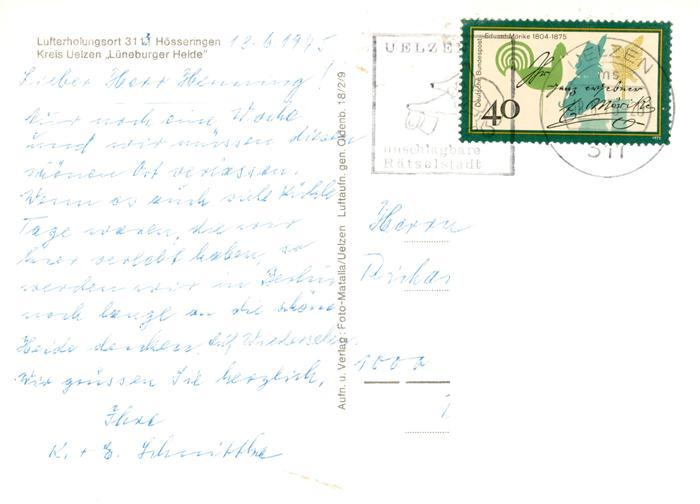 Lufterholungsort 3111 Hösseringen
Kreis Uelzen „Lüneburger Heide"
18.6.1975
Lieber Herr Hennung!
Nur noch eine Woche
und wir müssen diesen
schönen Ort verlassen.
Wenn es auch viele kühle
Tage waren, die wir
hier verlebt haben, so
werden wir in Berlin
noch lange an die schöne
Heide denken. Auf Wiedersehn.
Wir grüssen Sie herzlich,
Ihre
K. + E.
Aufn. u. Verlag: Foto-Matalla/Uelzen Luftaufn. gen. Oldenb. 18/2/9
UELZEN
unschlagbare
Rätselstadt
Eduard Mörike 1804-1875
Deutsche Bundespost
40
E. Mörike
UELZEN
311
Herrn
1000